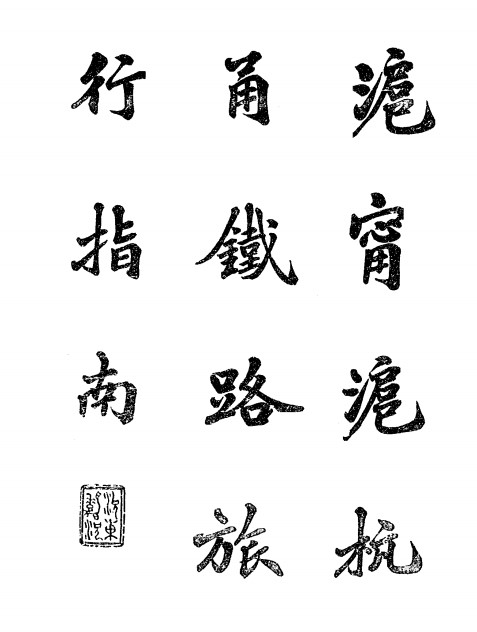 滬甯滬杭
甬鐵路旅
行指南